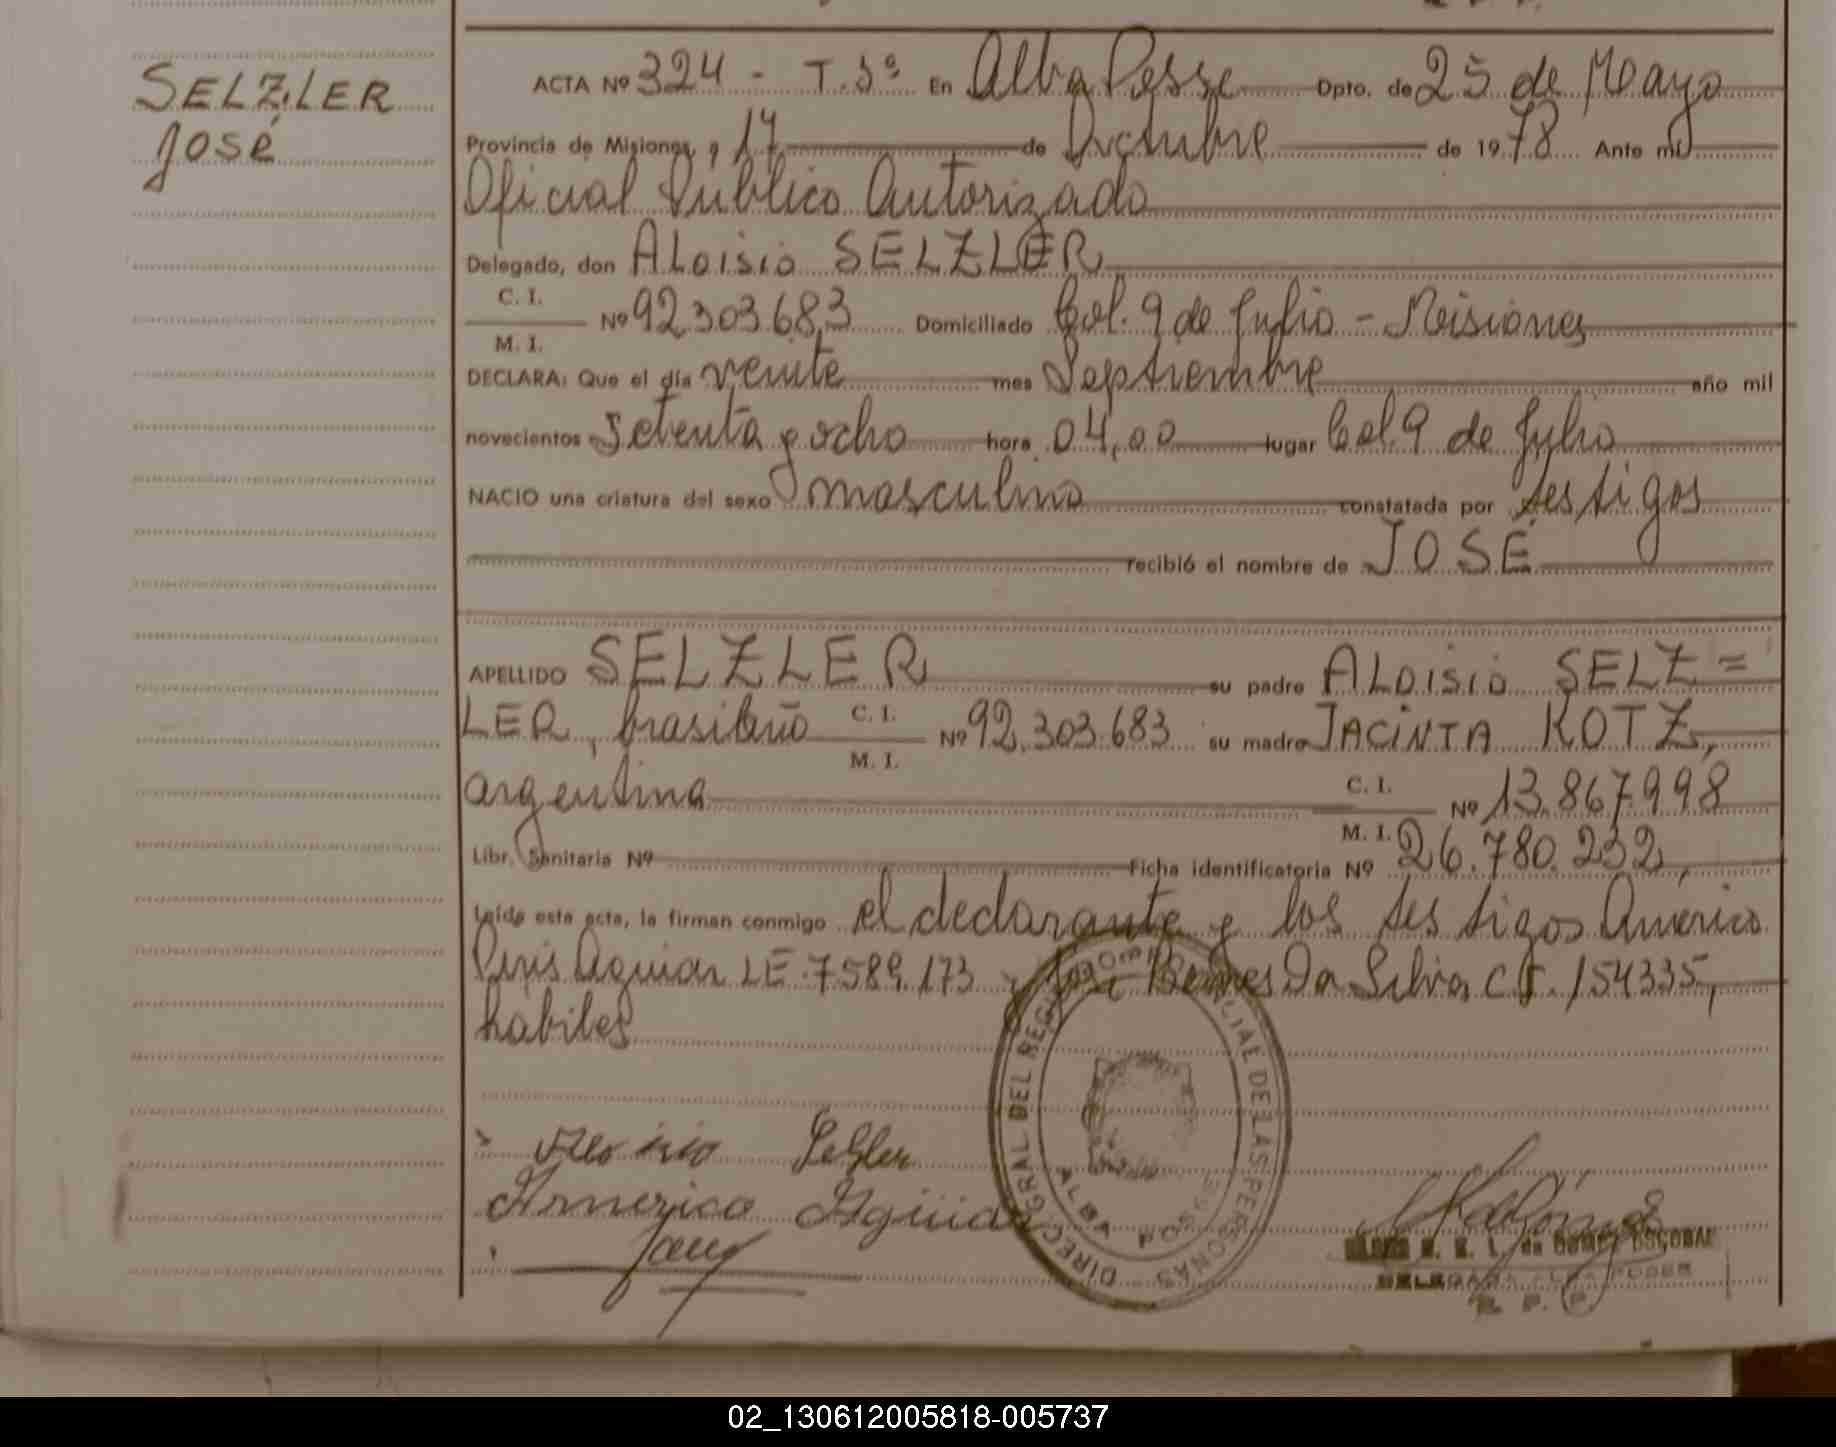 SELZLER
José
ACTA Nº 324 - T. 3º En Alba Posse Dpto. de 25 de Mayo
Provincia de Misiones, a 17 de Octubre de 1978 Ante mi
Oficial Público Autorizado
Delegado, don ALoisio SELZLER
C. I.
Nº 92.303.683 Domiciliado Col. 9 de Julio - Misiones
M. I.
DECLARA: Que el día veinte mes Septiembre año mil
novecientos setenta y ocho hora 04,00 lugar Col 9 de Julio
NACIO una criatura del sexo masculino constatada por testigos
recibió el nombre de JOSÉ
APELLIDO SELZLER su padre ALOISIO SELZ=
LER, brasileño C. I. Nº 92.303.683 su madre JACINTA KOTZ,
M. I.
argentina C. I. Nº 13.867.998
M. I.
Libr. Sanitaria Nº Ficha identificatoria Nº 26.780.232,
Leída esta acta, la firman conmigo el declarante y los testigos Américo
Aguiar LE. 7.589.173 y Da Silva C.I. 154335,
habiles
Aloisio Selzler
Americo Aguiar
DIREC. GRAL DEL REG. PROVINCIAL DE LAS PERSONAS
ALBA POSSE
DE GOMEZ ESCOBAR
DELEGADA ALBA POSSE
R. P. P.
02_130612005818-005737